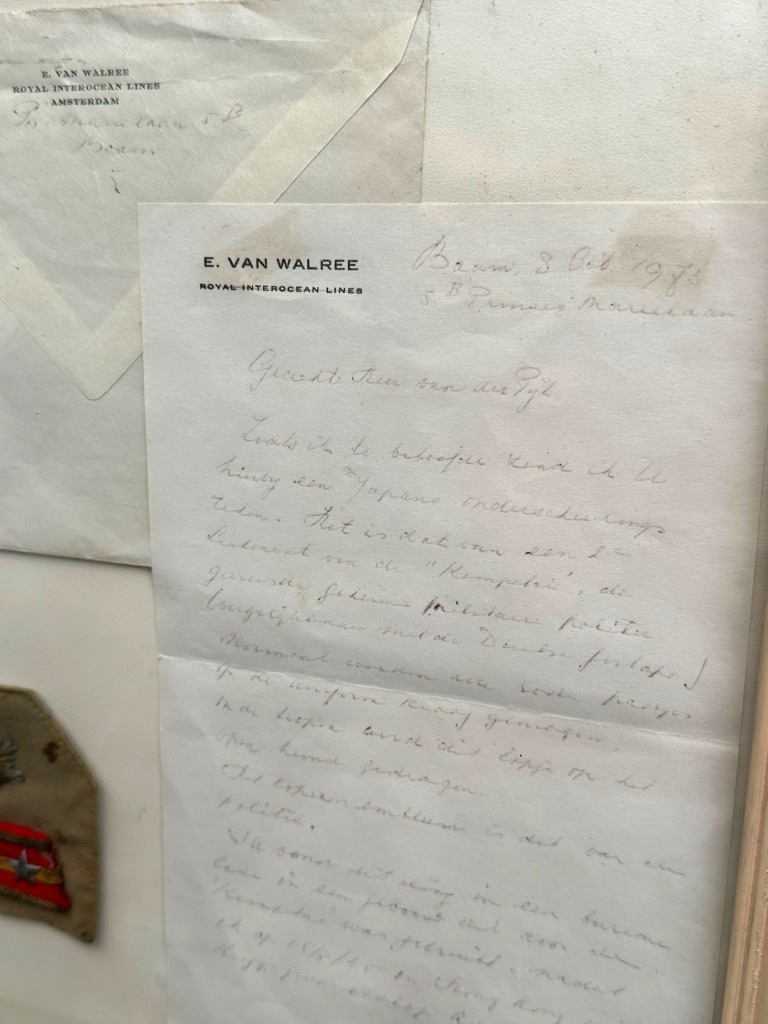 E. VAN WALREE
ROYAL INTEROCEAN LINES
AMSTERDAM
Pr. Marielaan 5 B
Baarn
E. VAN WALREE
ROYAL INTEROCEAN LINES
Baarn, 8 Oct 198
5 B Prinses Marielaan
Geachte Heer van der Pijl
Zoals ik te beloofde zend ik U
hierbij een Japans onderscheidings
teken. Het is dat van een 2e
Luitenant van de "Kempetai", de
gevreesde geheime militaire politie
(vergelijkbaar met de Duitse Gestapo)
Normaal worden de rode
op de uniform kraag gedragen.
In de tropen werd dit lapje op het
open hemd gedragen.
Het koperen embleem is dat van de
politie.
Ik vond dit ding in een bureau
lade in een gebouw dat door de
Kempetai was gebruikt, nadat
ik op 15/8/45 in Hong Kong